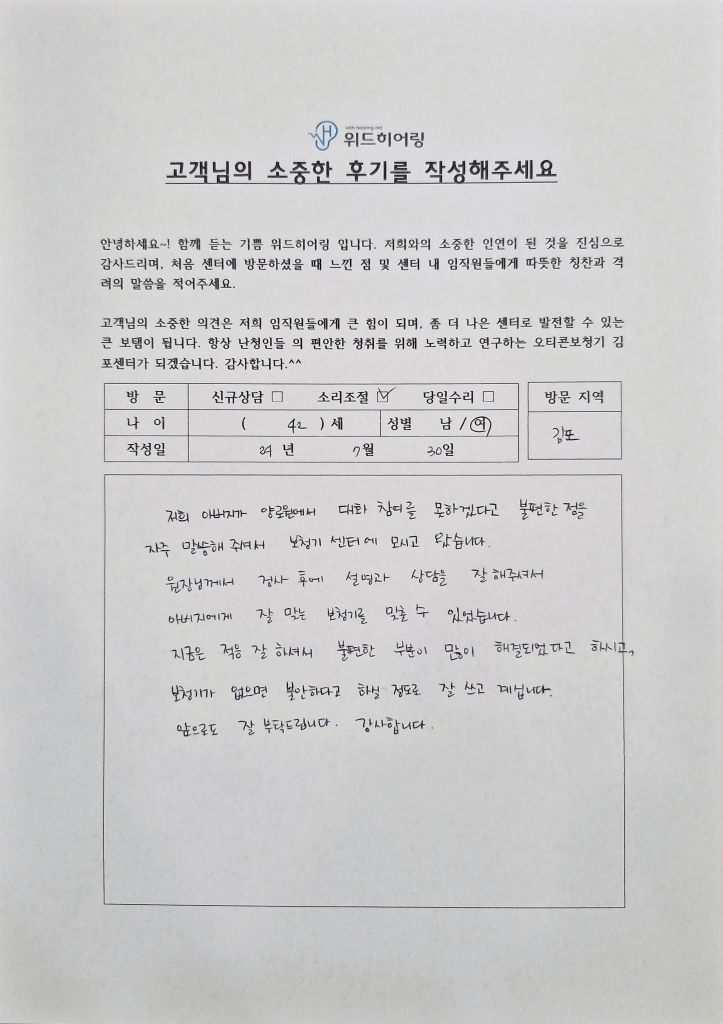 with hearing aid
위드히어링
고객님의 소중한 후기를 작성해주세요
안녕하세요~! 함께 듣는 기쁨 위드히어링 입니다. 저희와의 소중한 인연이 된 것을 진심으로
감사드리며, 처음 센터에 방문하셨을 때 느낀 점 및 센터 내 임직원들에게 따뜻한 칭찬과 격
려의 말씀을 적어주세요.
고객님의 소중한 의견은 저희 임직원들에게 큰 힘이 되며, 좀 더 나은 센터로 발전할 수 있는
큰 보탬이 됩니다. 항상 난청인들 의 편안한 청취를 위해 노력하고 연구하는 오티콘보청기 김
포센터가 되겠습니다. 감사합니다.^^
방 문 신규상담 □ 소리조절 ☑ 당일수리 □ 방문 지역
나 이 ( 42 ) 세 성별 남 / 여 김포
작성일 24 년 7월 30일
저희 아버지가 양로원에서 대화 참여를 못하겠다고 불편한 점을
자주 말씀해 주셔서 보청기 센터에 모시고 왔습니다.
원장님께서 검사 후에 설명과 상담을 잘 해주셔서
아버지에게 잘 맞는 보청기를 맞출 수 있었습니다.
지금은 적응 잘 하셔서 불편한 부분이 많이 해결되었다고 하시고,
보청기가 없으면 불안하다고 하실 정도로 잘 쓰고 계십니다.
앞으로도 잘 부탁드립니다. 감사합니다.